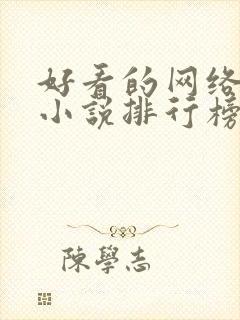 好看的网络
小说排行榜
陈學志